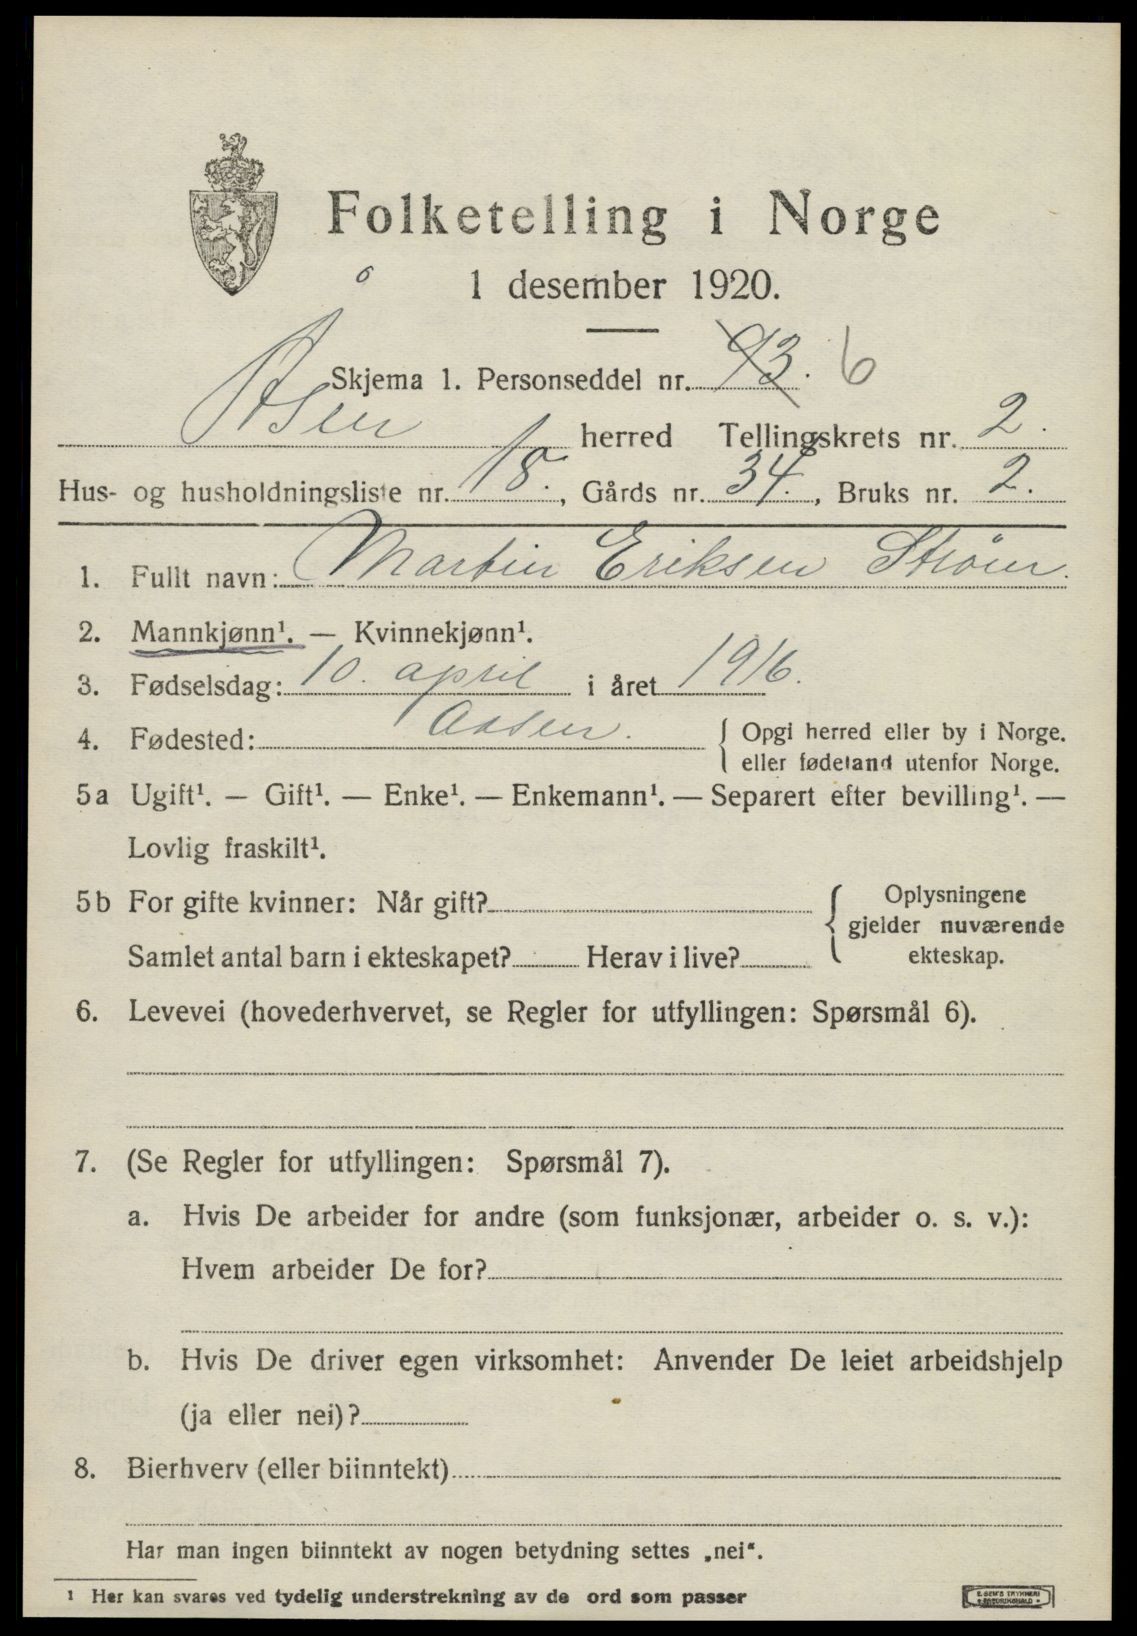 Folketelling i Norge
1 desember 1920.
Skjema 1. Personseddel nr. 93. 6
Åsen herred Tellingskrets nr. 2.
Hus- og husholdningsliste nr. 18., Gårds nr. 34., Bruks nr. 2.
1. Fullt navn: Martin Eriksen Strøm.
2. Mannkjønn¹. — Kvinnekjønn¹.
3. Fødselsdag: 10. april i året 1916.
4. Fødested: Aasen. { Opgi herred eller by i Norge.
eller fødeland utenfor Norge.
5a Ugift¹. — Gift¹. — Enke¹. — Enkemann¹. — Separert efter bevilling¹. —
Lovlig fraskilt¹.
5b For gifte kvinner: Når gift? { Oplysningene
gjelder nuværende
Samlet antal barn i ekteskapet? Herav i live? ekteskap.
6. Levevei (hovederhvervet, se Regler for utfyllingen: Spørsmål 6).
7. (Se Regler for utfyllingen: Spørsmål 7).
a. Hvis De arbeider for andre (som funksjonær, arbeider o. s. v.):
Hvem arbeider De for?
b. Hvis De driver egen virksomhet: Anvender De leiet arbeidshjelp
(ja eller nei)?
8. Bierhverv (eller biinntekt)
Har man ingen biinntekt av nogen betydning settes „nei“.
¹ Her kan svares ved tydelig understrekning av de ord som passer
E. SEM'S TRYKKERI
FREDRIKSHALD